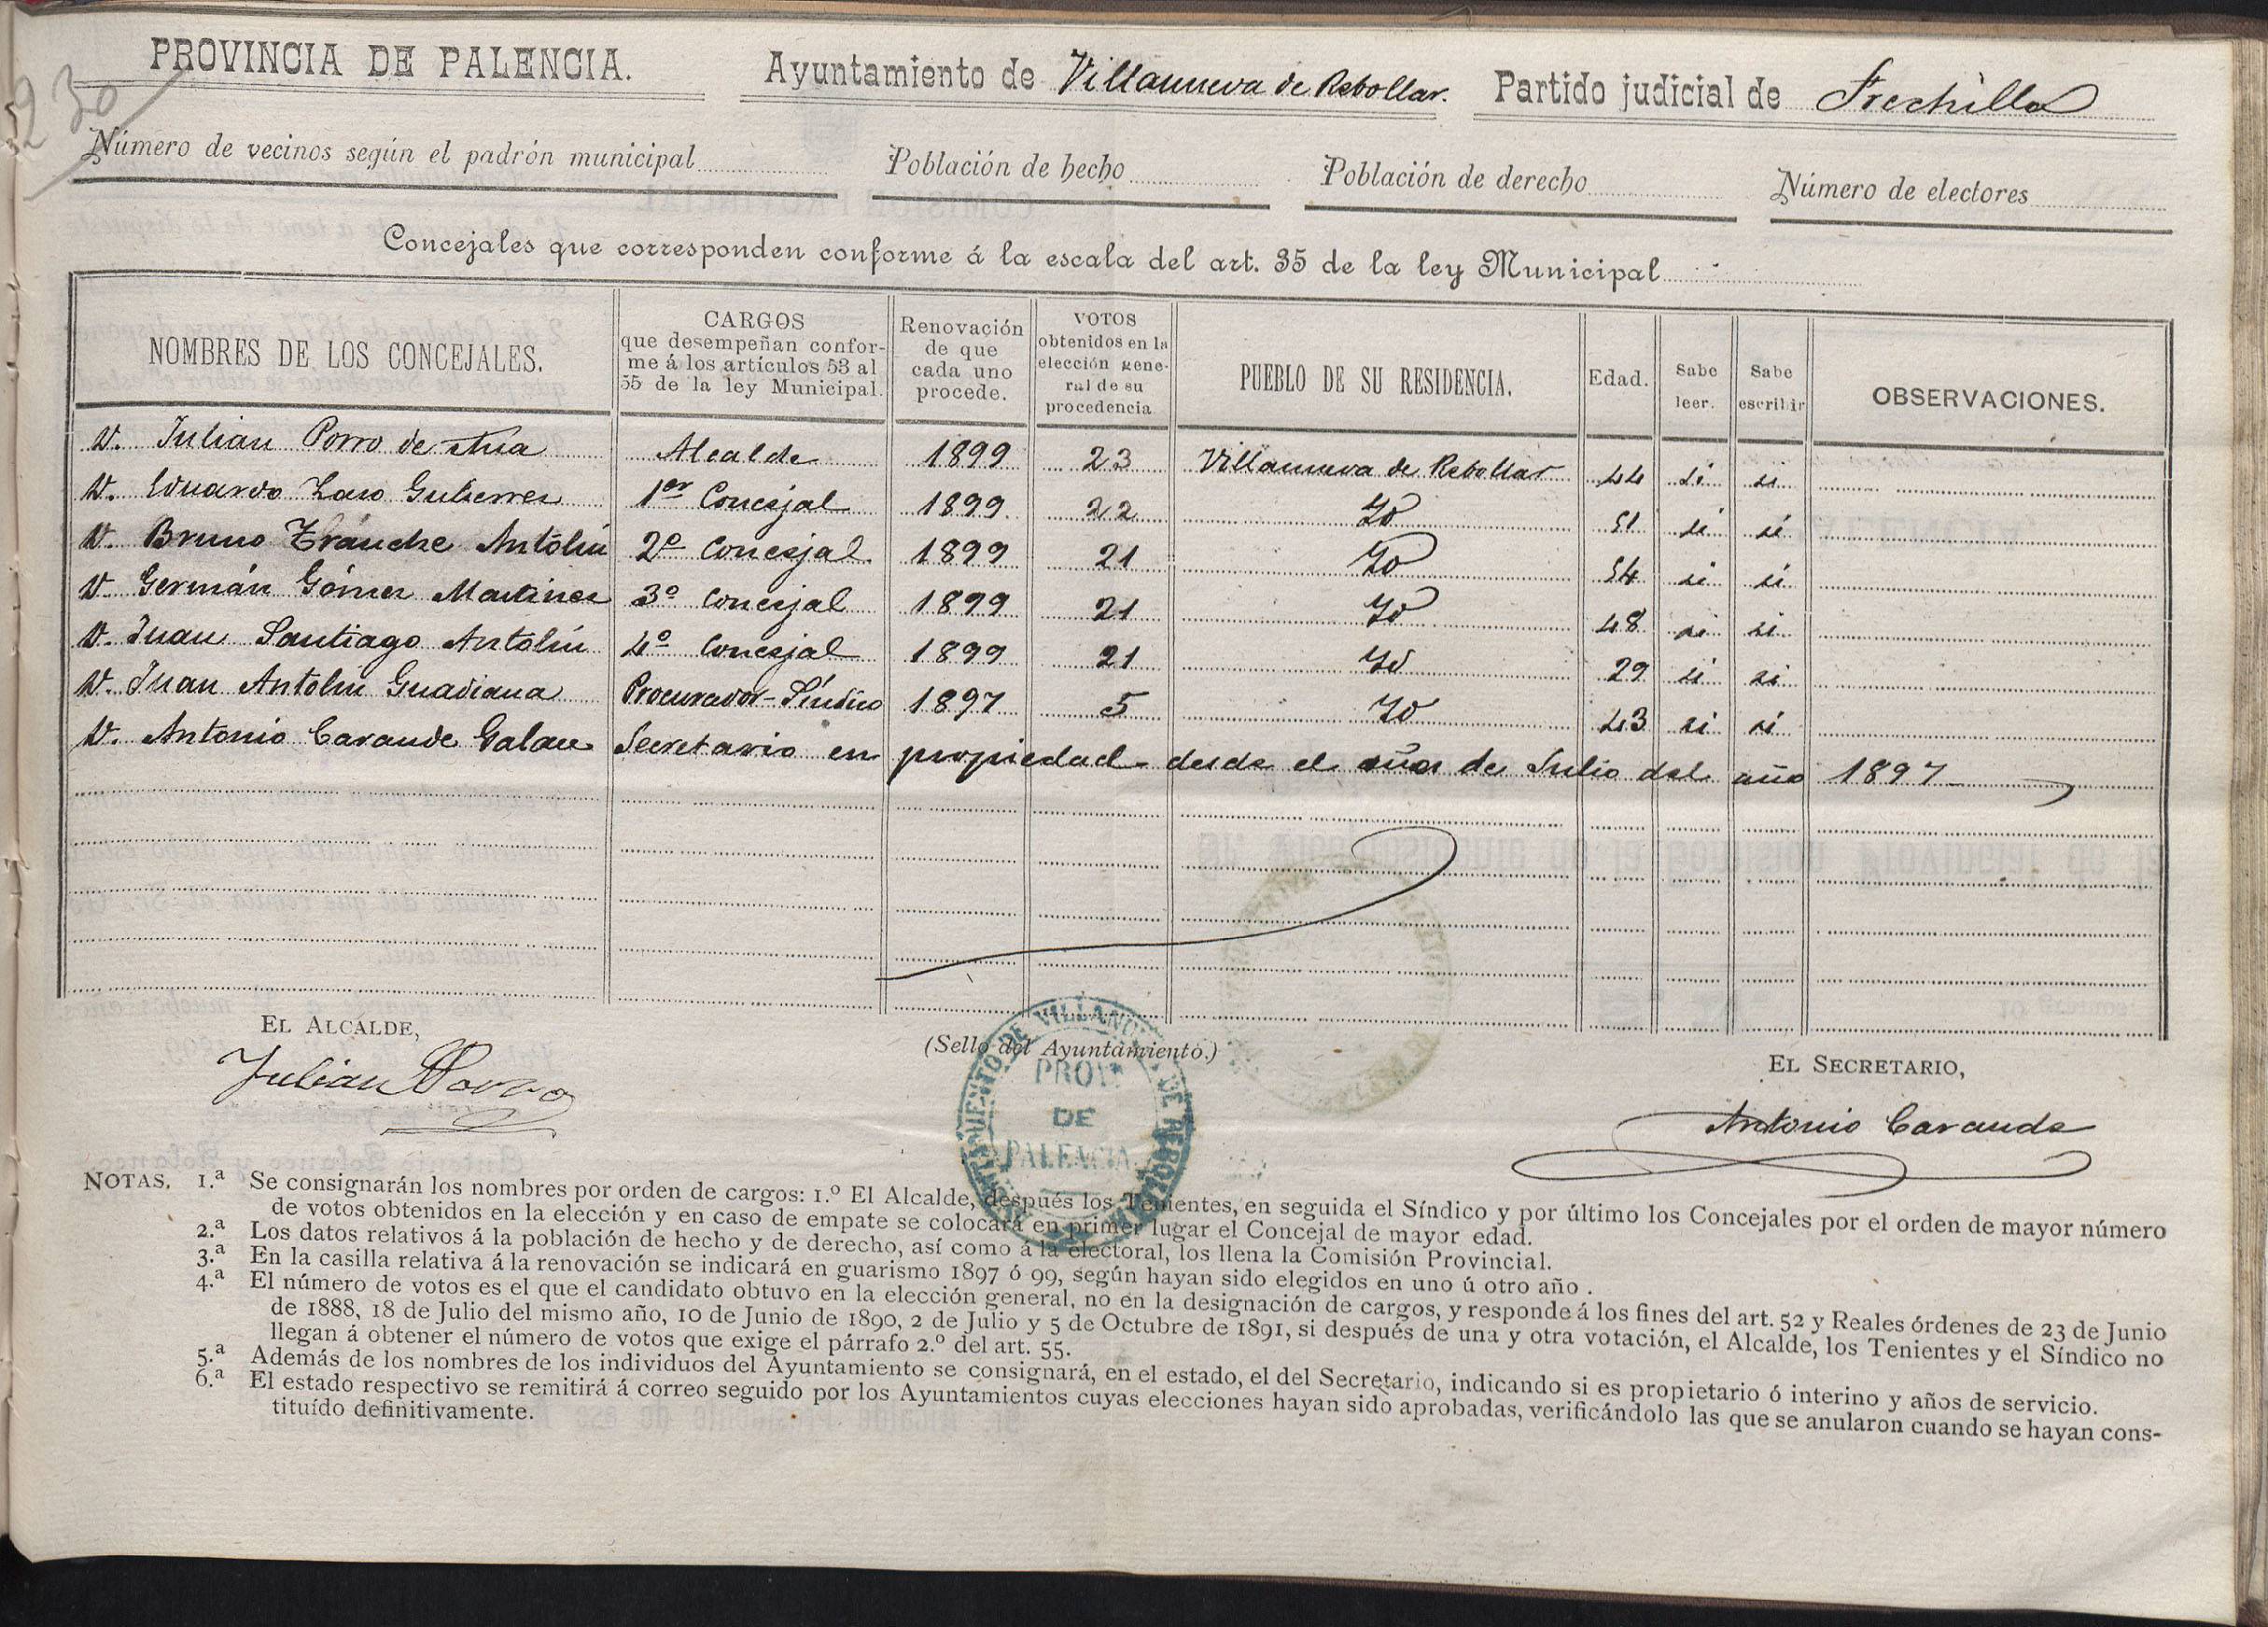 230
PROVINCIA DE PALENCIA. Ayuntamiento de Villanueva de Rebollar. Partido judicial de Frechilla
Número de vecinos según el padrón municipal Población de hecho Población de derecho Número de electores
Concejales que corresponden conforme á la escala del art. 35 de la ley Municipal
NOMBRES DE LOS CONCEJALES. CARGOS que desempeñan conforme á los artículos 53 al 55 de la ley Municipal. Renovación de que cada uno procede. VOTOS obtenidos en la elección general de su procedencia PUEBLO DE SU RESIDENCIA. Edad. Sabe leer. Sabe escribir OBSERVACIONES.
D. Julian Porro de Alcalde 1899 23 Villanueva de Rebollar 44 si si
D. Eduardo Laso Gutierrez 1er Concejal 1899 22 Yd 51 si si
D. Bruno Tránche Antolín 2º Concejal 1899 21 Yd 54 si si
D. Germán Gómez Martinez 3º Concejal 1899 21 Yd 48 si si
D. Juan Santiago Antolín 4º Concejal 1899 21 Yd 29 si si
D. Juan Antolín Guadiana Procurador-Síndico 1897 5 Yd 43 si si
D. Antonio Carande Galan Secretario en propiedad desde el de Julio del año 1897
EL ALCALDE, (Sello del Ayuntamiento.) EL SECRETARIO,
Julian Porro
Antonio Carande
AYUNTAMIENTO DE VILLANUEVA DE REBOLLAR
PROVª
DE
PALENCIA
NOTAS. 1.ª Se consignarán los nombres por orden de cargos: 1.º El Alcalde, después los Tenientes, en seguida el Síndico y por último los Concejales por el orden de mayor número
de votos obtenidos en la elección y en caso de empate se colocará en primer lugar el Concejal de mayor edad.
2.ª Los datos relativos á la población de hecho y de derecho, así como á la electoral, los llena la Comisión Provincial.
3.ª En la casilla relativa á la renovación se indicará en guarismo 1897 ó 99, según hayan sido elegidos en uno ú otro año .
4.ª El número de votos es el que el candidato obtuvo en la elección general, no en la designación de cargos, y responde á los fines del art. 52 y Reales órdenes de 23 de Junio
de 1888, 18 de Julio del mismo año, 10 de Junio de 1890, 2 de Julio y 5 de Octubre de 1891, si después de una y otra votación, el Alcalde, los Tenientes y el Síndico no
llegan á obtener el número de votos que exige el párrafo 2.º del art. 55.
5.ª Además de los nombres de los individuos del Ayuntamiento se consignará, en el estado, el del Secretario, indicando si es propietario ó interino y años de servicio.
6.ª El estado respectivo se remitirá á correo seguido por los Ayuntamientos cuyas elecciones hayan sido aprobadas, verificándolo las que se anularon cuando se hayan cons-
tituído definitivamente.